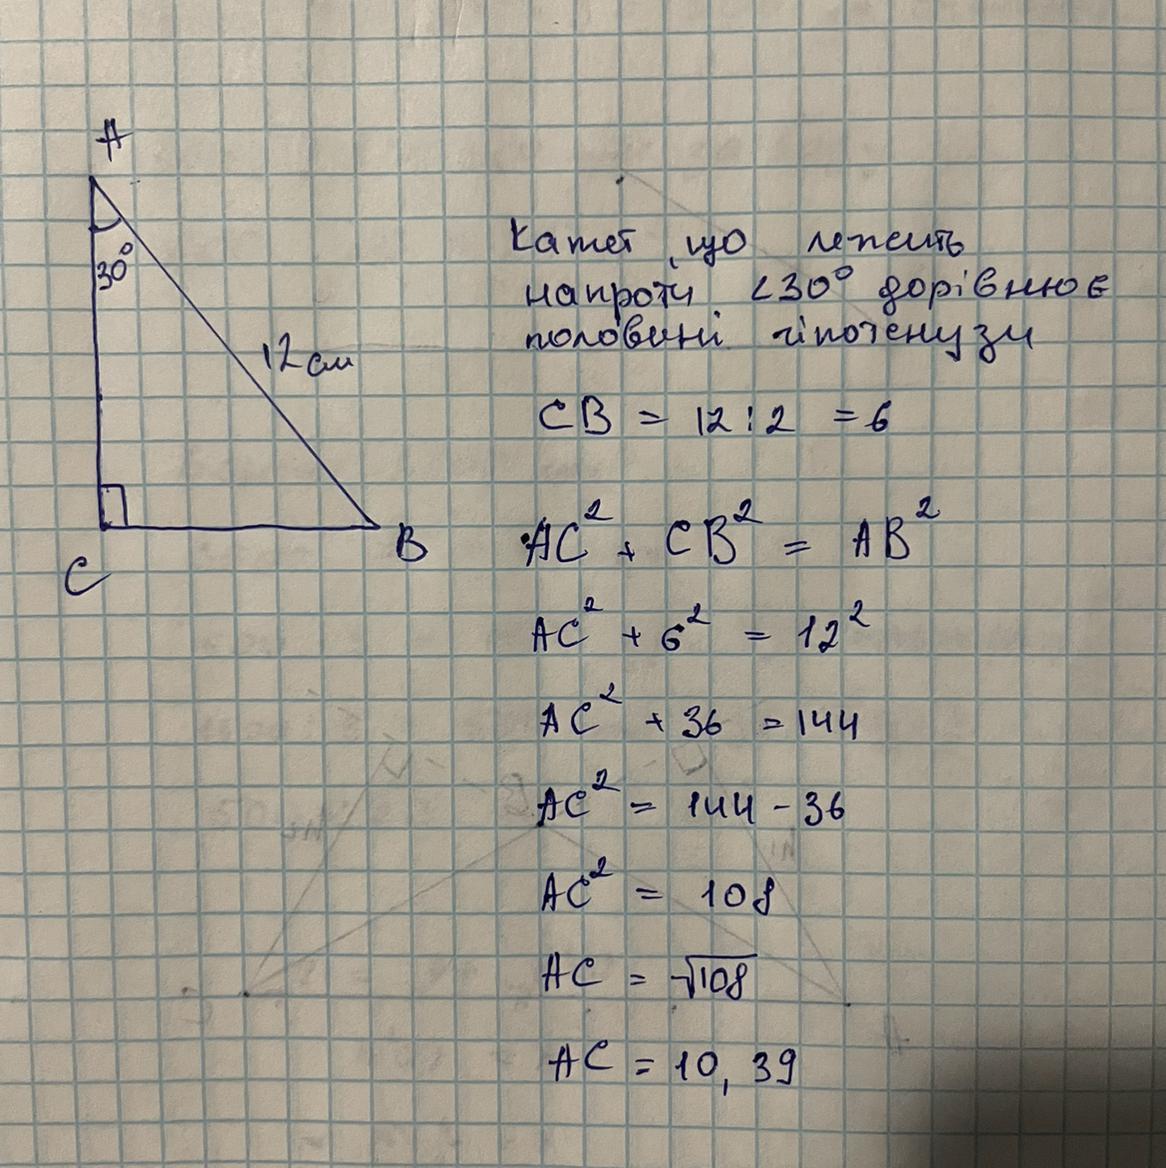 A
30°
12 см
C
B
Катет, що лежить
напроти <30° дорівнює
половині гіпотенузи
CB = 12 : 2 = 6
AC² + CB² = AB²
AC² + 6² = 12²
AC² + 36 = 144
AC² = 144 - 36
AC² = 108
AC = √108
AC = 10,39